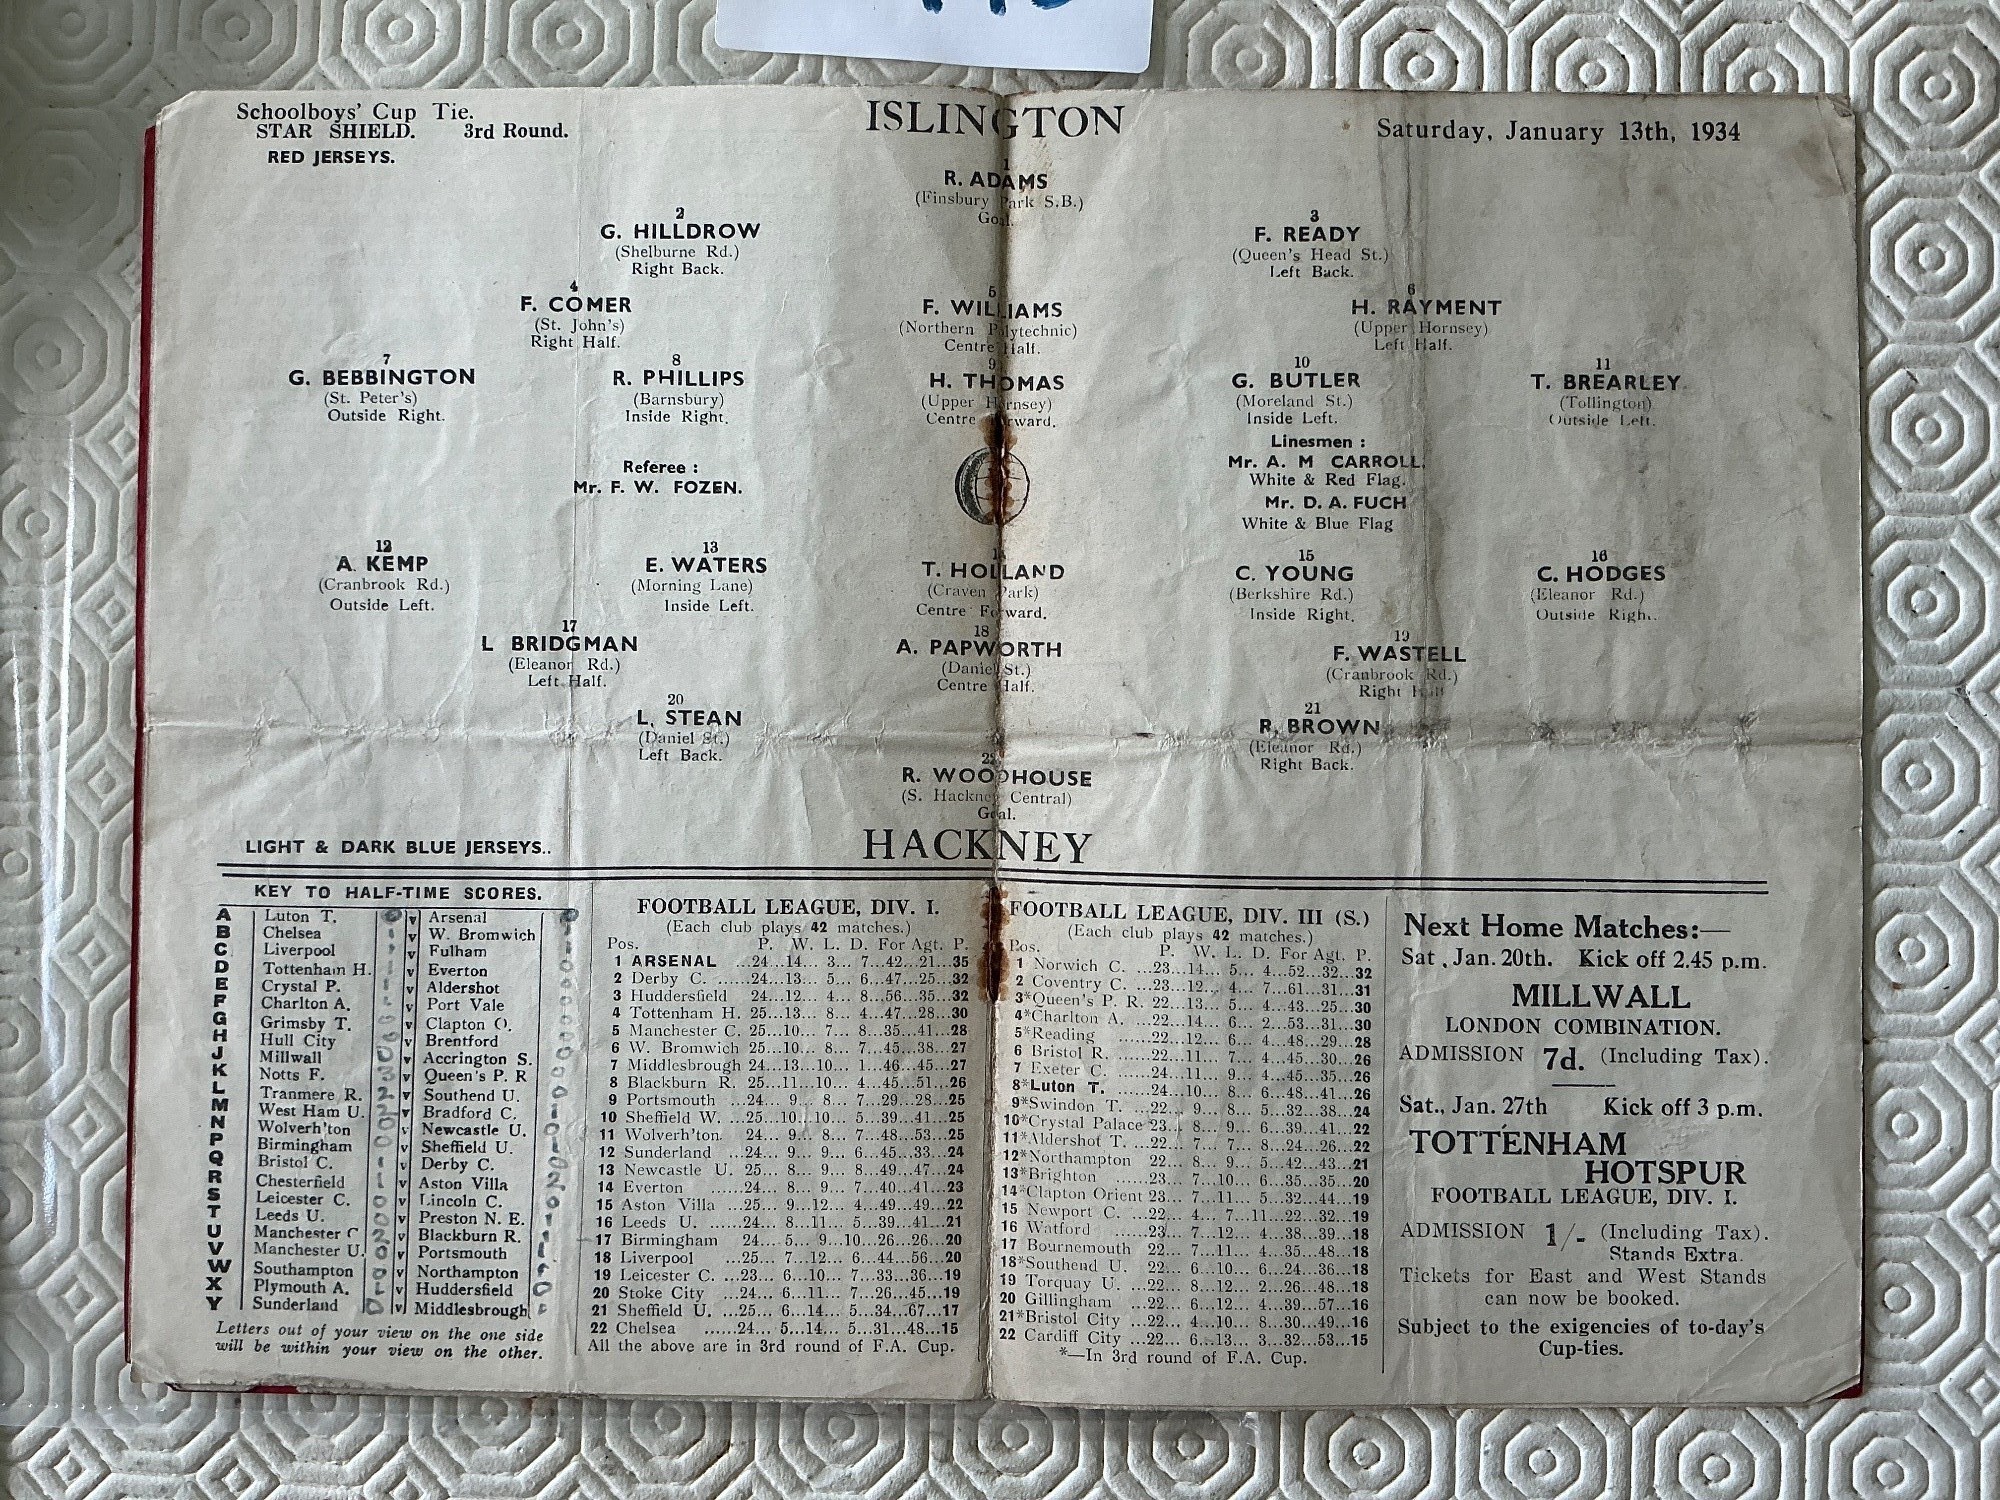 Schoolboys' Cup Tie.
STAR SHIELD. 3rd Round.
RED JERSEYS.
ISLINGTON
Saturday, January 13th, 1934
1
R. ADAMS
(Finsbury Park S.B.)
Goal.
2
G. HILLDROW
(Shelburne Rd.)
Right Back.
3
F. READY
(Queen's Head St.)
Left Back.
4
F. COMER
(St. John's)
Right Half.
5
F. WILLIAMS
(Northern Polytechnic)
Centre Half.
6
H. RAYMENT
(Upper Hornsey)
Left Half.
7
G. BEBBINGTON
(St. Peter's)
Outside Right.
8
R. PHILLIPS
(Barnsbury)
Inside Right.
9
H. THOMAS
(Upper Hornsey)
Centre Forward.
10
G. BUTLER
(Moreland St.)
Inside Left.
11
T. BREARLEY
(Tollington)
Outside Left.
Referee :
Mr. F. W. FOZEN.
Linesmen :
Mr. A. M CARROLL.
White & Red Flag.
Mr. D. A. FUCH
White & Blue Flag
12
A. KEMP
(Cranbrook Rd.)
Outside Left.
13
E. WATERS
(Morning Lane)
Inside Left.
14
T. HOLLAND
(Craven Park)
Centre Forward.
15
C. YOUNG
(Berkshire Rd.)
Inside Right.
16
C. HODGES
(Eleanor Rd.)
Outside Right.
17
L BRIDGMAN
(Eleanor Rd.)
Left Half.
18
A. PAPWORTH
(Daniel St.)
Centre Half.
19
F. WASTELL
(Cranbrook Rd.)
Right Half
20
L. STEAN
(Daniel St.)
Left Back.
21
R. BROWN
(Eleanor Rd.)
Right Back.
22
R. WOODHOUSE
(S. Hackney Central)
Goal.
LIGHT & DARK BLUE JERSEYS..
HACKNEY
KEY TO HALF-TIME SCORES.
A Luton T. 0 v Arsenal
B Chelsea v W. Bromwich
C Liverpool v Fulham
D Tottenham H. v Everton
E Crystal P. v Aldershot
F Charlton A. v Port Vale
G Grimsby T. v Clapton O.
H Hull City v Brentford
J Millwall v Accrington S.
K Notts F. 3 v Queen's P. R
L Tranmere R. 2 v Southend U.
M West Ham U. 2 v Bradford C.
N Wolverh'ton 0 v Newcastle U.
P Birmingham 0 v Sheffield U.
Q Bristol C. 1 v Derby C.
R Chesterfield 1 v Aston Villa 2
S Leicester C. 0 v Lincoln C. 0
T Leeds U. 0 v Preston N. E. 1
U Manchester C 2 v Blackburn R.
V Manchester U. 0 v Portsmouth
W Southampton 0 v Northampton
X Plymouth A. v Huddersfield 0
Y Sunderland 0 v Middlesbrough
Letters out of your view on the one side
will be within your view on the other.
FOOTBALL LEAGUE, DIV. I.
(Each club plays 42 matches.)
Pos. P. W. L. D. For Agt. P.
1 ARSENAL ...24...14... 3... 7...42...21...35
2 Derby C. ...24...13... 5... 6...47...25...32
3 Huddersfield 24...12... 4... 8...56...35...32
4 Tottenham H. 25...13... 8... 4...47...28...30
5 Manchester C. 25...10... 7... 8...35...41...28
6 W. Bromwich 25...10... 8... 7...45...38...27
7 Middlesbrough 24...13...10... 1...46...45...27
8 Blackburn R. 25...11...10... 4...45...51...26
9 Portsmouth ...24... 9... 8... 7...29...28...25
10 Sheffield W. ...25...10...10... 5...39...41...25
11 Wolverh'ton. 24... 9... 8... 7...48...53...25
12 Sunderland ...24... 9... 9... 6...45...33...24
13 Newcastle U. 25... 8... 9... 8...49...47...24
14 Everton ......24... 8... 9... 7...40...41...23
15 Aston Villa ...25... 9...12... 4...49...49...22
16 Leeds U. ......24... 8...11... 5...39...41...21
17 Birmingham 24... 5... 9...10...26...26...20
18 Liverpool ...25... 7...12... 6...44...56...20
19 Leicester C. ...23... 6...10... 7...33...36...19
20 Stoke City ...24... 6...11... 7...26...45...19
21 Sheffield U. ...25... 6...14... 5...34...67...17
22 Chelsea ......24... 5...14... 5...31...48...15
All the above are in 3rd round of F.A. Cup.
FOOTBALL LEAGUE, DIV. III (S.)
(Each club plays 42 matches.)
Pos. P. W. L. D. For Agt. P.
1 Norwich C. ...23...14... 5... 4...52...32...32
2 Coventry C. ...23...12... 4... 7...61...31...31
3*Queen's P. R. 22...13... 5... 4...43...25...30
4*Charlton A. ...22...14... 6... 2...53...31...30
5*Reading ......22...12... 6... 4...48...29...28
6 Bristol R. ...22...11... 7... 4...45...30...26
7 Exeter C. ...24...11... 9... 4...45...35...26
8*Luton T. ...24...10... 8... 6...48...41...26
9*Swindon T. ...22... 9... 8... 5...32...38...24
10*Crystal Palace 23... 8... 9... 6...39...41...22
11*Aldershot T. ...22... 7... 7... 8...24...26...22
12*Northampton 22... 8... 9... 5...42...43...21
13*Brighton ...23... 7...10... 6...35...35...20
14*Clapton Orient 23... 7...11... 5...32...44...19
15 Newport C. ...22... 4... 7...11...22...32...19
16 Watford ......23... 7...12... 4...38...39...18
17 Bournemouth 22... 7...11... 4...35...48...18
18*Southend U. 22... 6...10... 6...24...36...18
19 Torquay U. ...22... 8...12... 2...26...48...18
20 Gillingham ...22... 6...12... 4...39...57...16
21*Bristol City ...22... 4...10... 8...30...49...16
22 Cardiff City ...22... 6...13... 3...32...53...15
*—In 3rd round of F.A. Cup.
Next Home Matches:—
Sat, Jan. 20th. Kick off 2.45 p.m.
MILLWALL
LONDON COMBINATION.
ADMISSION 7d. (Including Tax).
Sat., Jan. 27th Kick off 3 p.m.
TOTTENHAM
HOTSPUR
FOOTBALL LEAGUE, DIV. I.
ADMISSION 1/- (Including Tax).
Stands Extra.
Tickets for East and West Stands
can now be booked.
Subject to the exigencies of to-day's
Cup-ties.